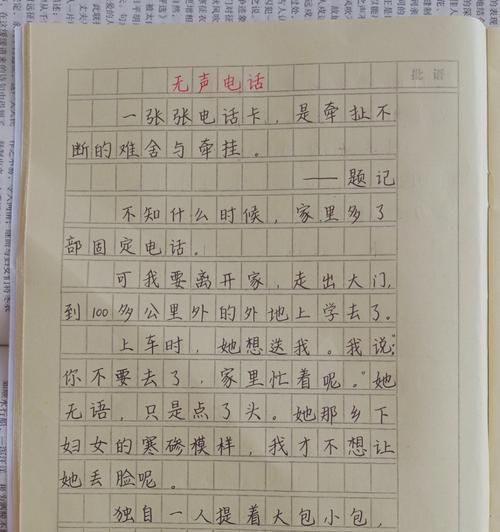 批语
无声电话
一张张电话卡，是牵扯不
断的难舍与牵挂。
——题记
不知什么时候，家里多了
部固定电话。
可我要离开家，走出大门，
到100多公里外的外地上学去了.
上车时，她想送我。我说："
你不要去了，家里忙着呢。"她
无语，只是点了头。她那乡下
妇女的寒碜模样，我才不想让
她丢脸呢。
独自一人提着大包小包，